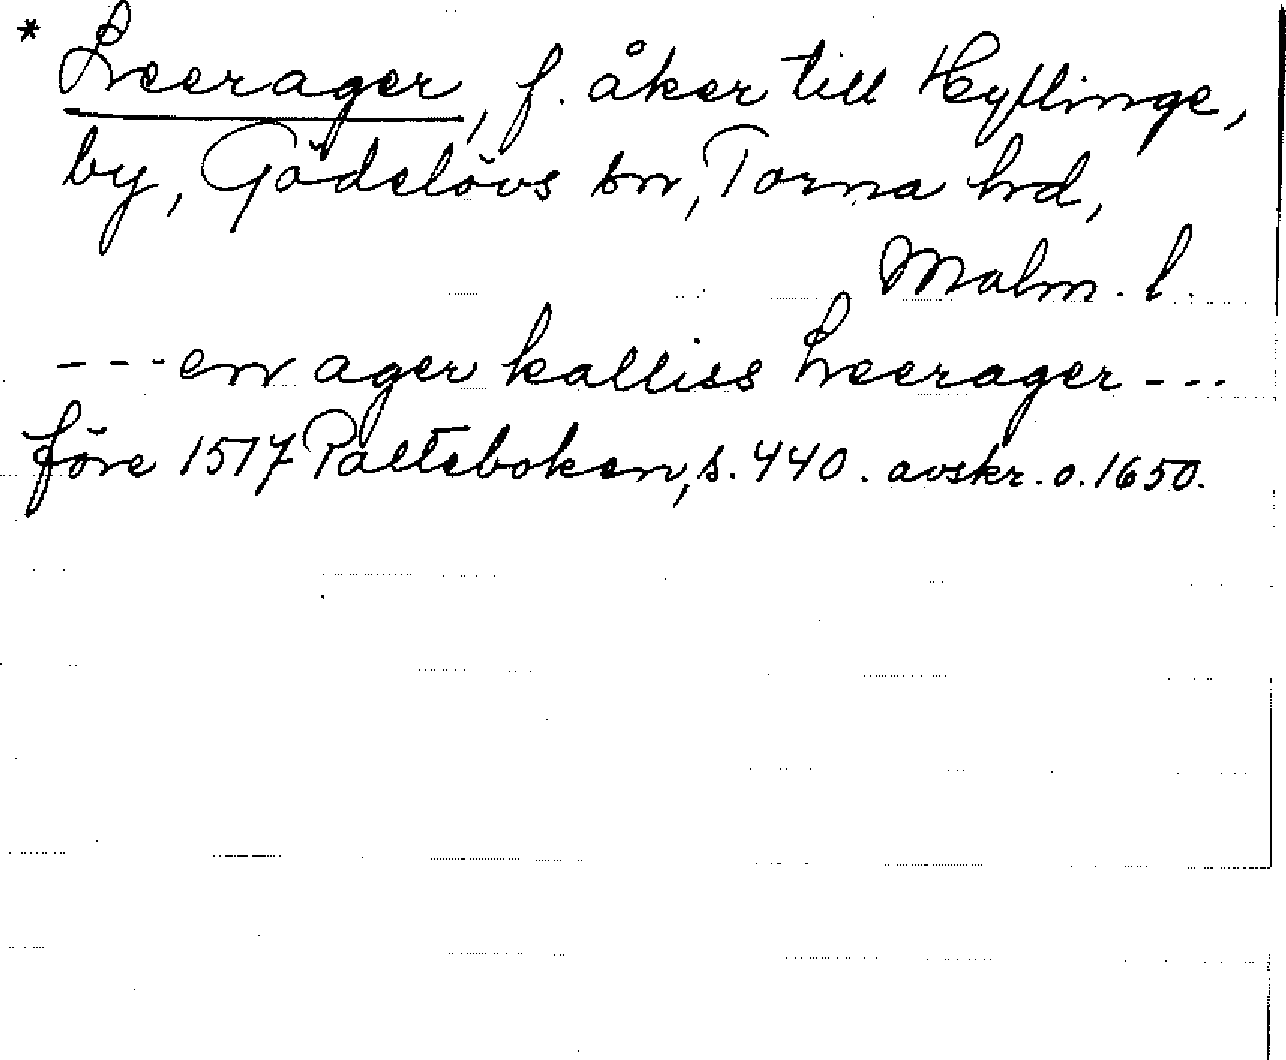 * Leerager, f. åker till Hyllinge,
by, Gödelövs sn, Torna hd,
Malm. l.
--- en ager kalliss Leerager ---
före 1517 Palteboken, s. 440. avskr. o. 1650.